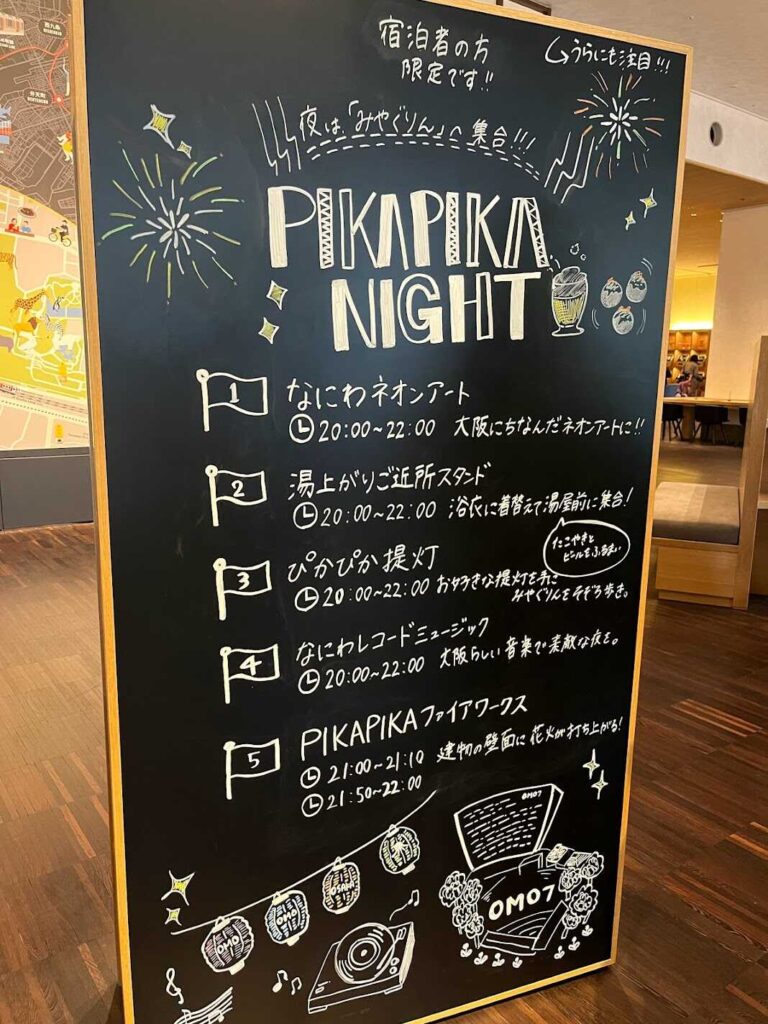 宿泊者の方
限定です!!
うらにも注目!!!
夜は「みやぐりん」へ集合!!!
PIKAPIKA
NIGHT
1 なにわネオンアート
20:00~22:00 大阪にちなんだネオンアートに!!
2 湯上がりご近所スタンド
20:00~22:00 浴衣に着替えて湯屋前に集合!
たこやきと
ビールをふるまい
3 ぴかぴか提灯
20:00~22:00 お好きな提灯を手に
みやぐりんをそぞろ歩き。
4 なにわレコードミュージック
20:00~22:00 大阪らしい音楽で素敵な夜を。
5 PIKAPIKAファイアワークス
21:00~21:10 建物の壁面に花火が打ち上がる!
21:50~22:00
OMO7
OMO
OMO
OSAKA
OMO7